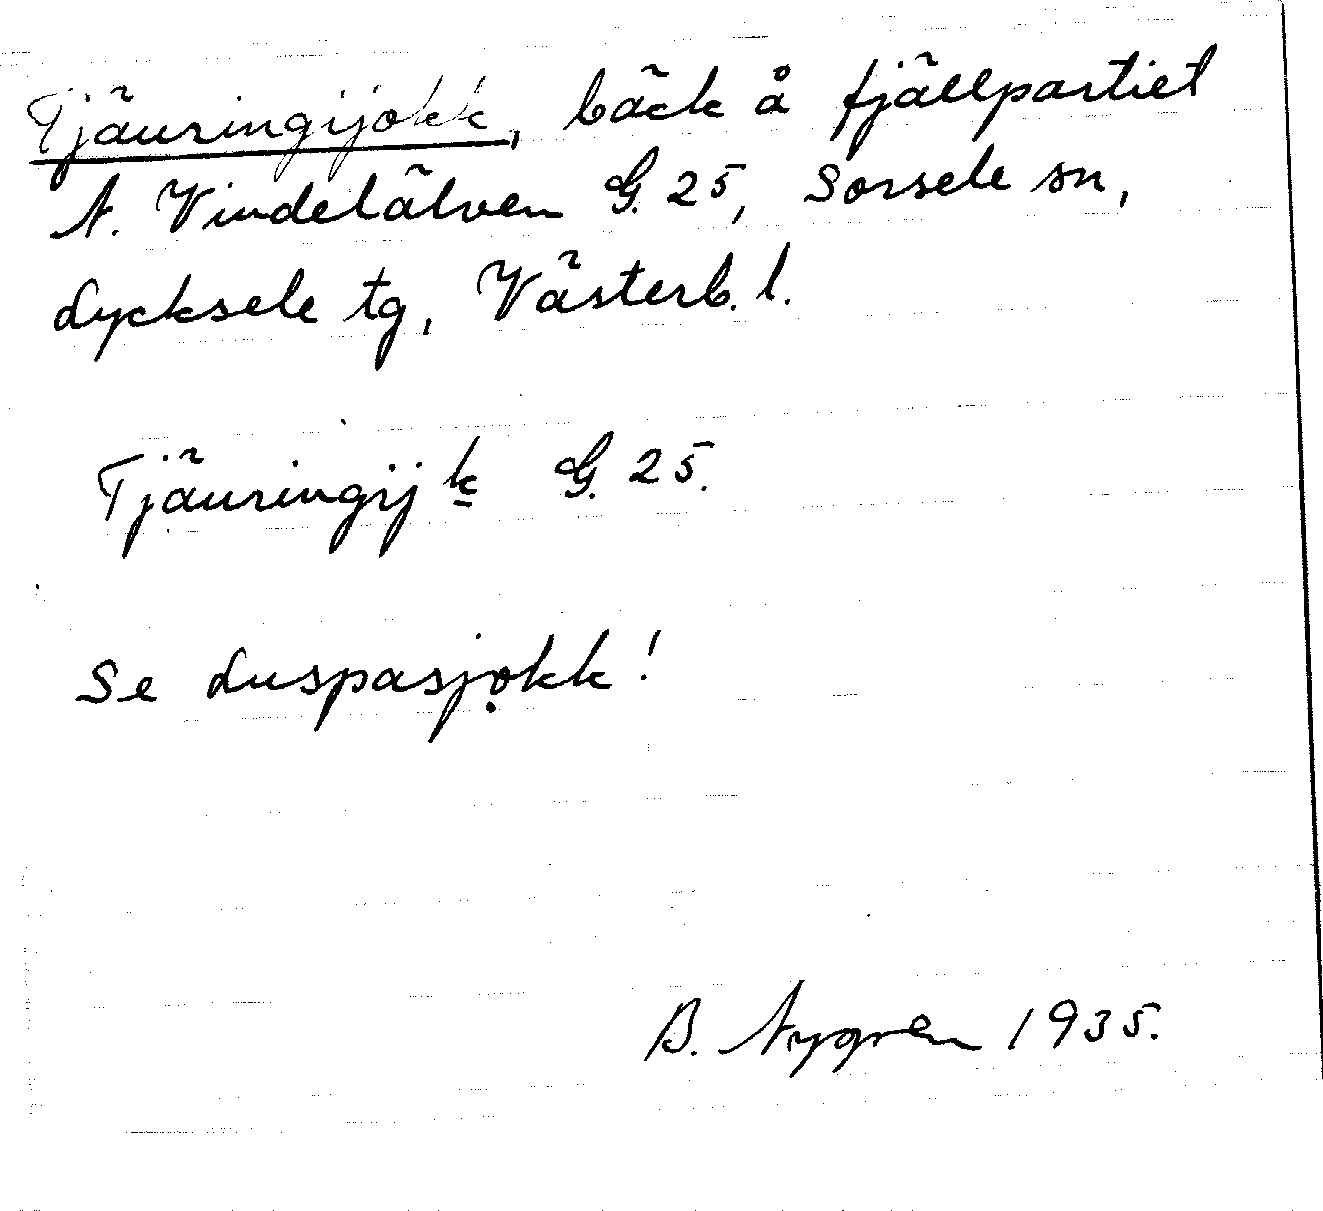 Tjäuringijokk, bäck å fjällpartiet
N. Vindelälven G. 25, Sorsele sn,
Lycksele tg, Västerb. l.
Tjäuringij k G. 25.
Se Luspasjọkk!
B. Nygren 1935.